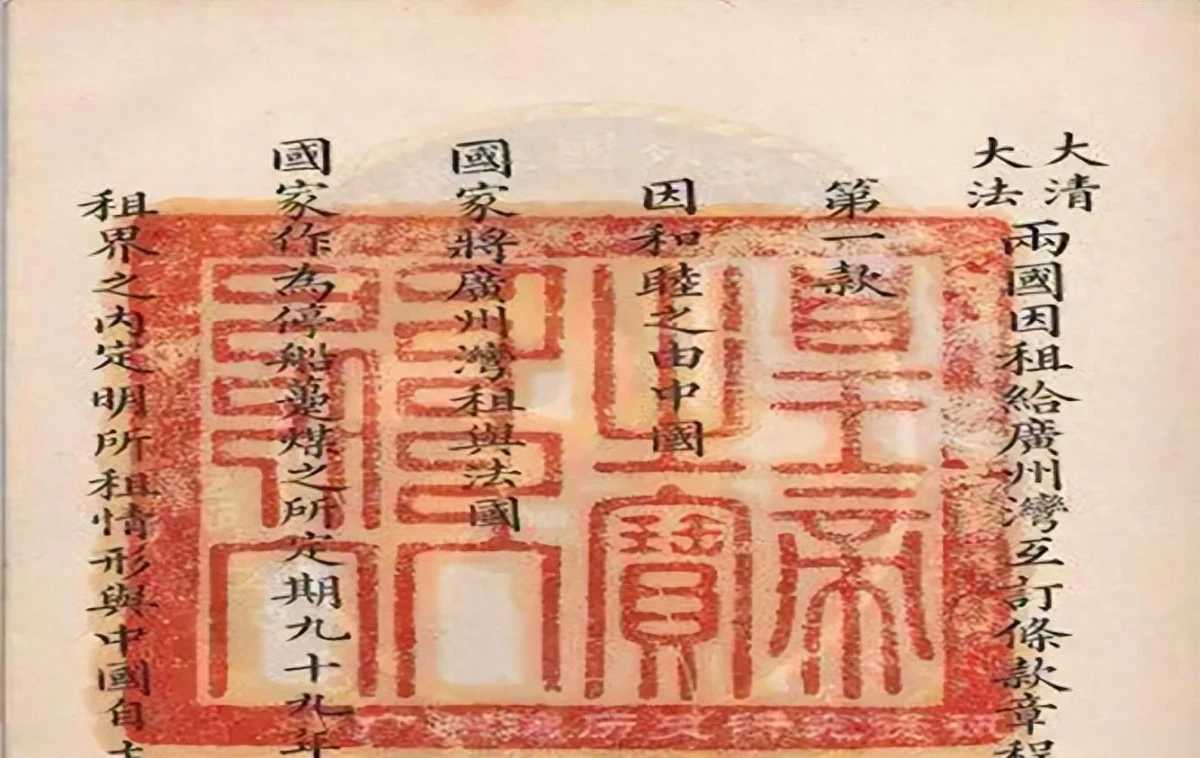 大清
大法
兩國因租給廣州灣互訂條款章程
第一款
因和睦之由中國
國家將廣州灣租與法國
國家作為停船躉煤之所定期九十九年
租界之内定明所租情形與中國自
皇帝
之寶